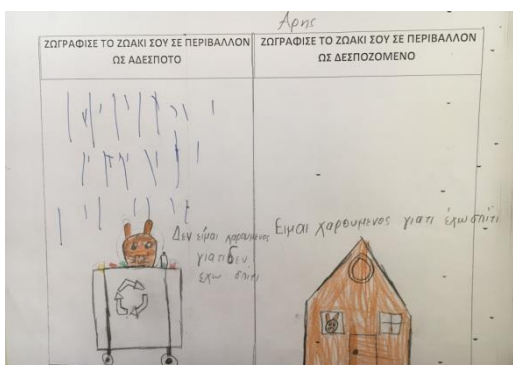 Άρης
ΖΩΓΡΑΦΙΣΕ ΤΟ ΖΩΑΚΙ ΣΟΥ ΣΕ ΠΕΡΙΒΑΛΛΟΝ
ΩΣ ΑΔΕΣΠΟΤΟ
ΖΩΓΡΑΦΙΣΕ ΤΟ ΖΩΑΚΙ ΣΟΥ ΣΕ ΠΕΡΙΒΑΛΛΟΝ
ΩΣ ΔΕΣΠΟΖΟΜΕΝΟ
Δεν είμαι χαρουμενος
γιατι δεν
εχω σπίτι
Είμαι χαρουμενος γιατι έχω σπίτι